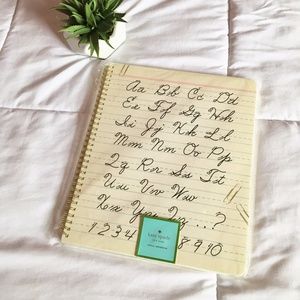 Aa Bb Cc Dd
Ee Ff Gg Hh
Ii Jj Kk Ll
Mm Nn Oo Pp
Qq Rr Ss Tt
Uu Vv Ww
Xx Yy Zz ..?
1 2 3 4 8 9 10
kate spade